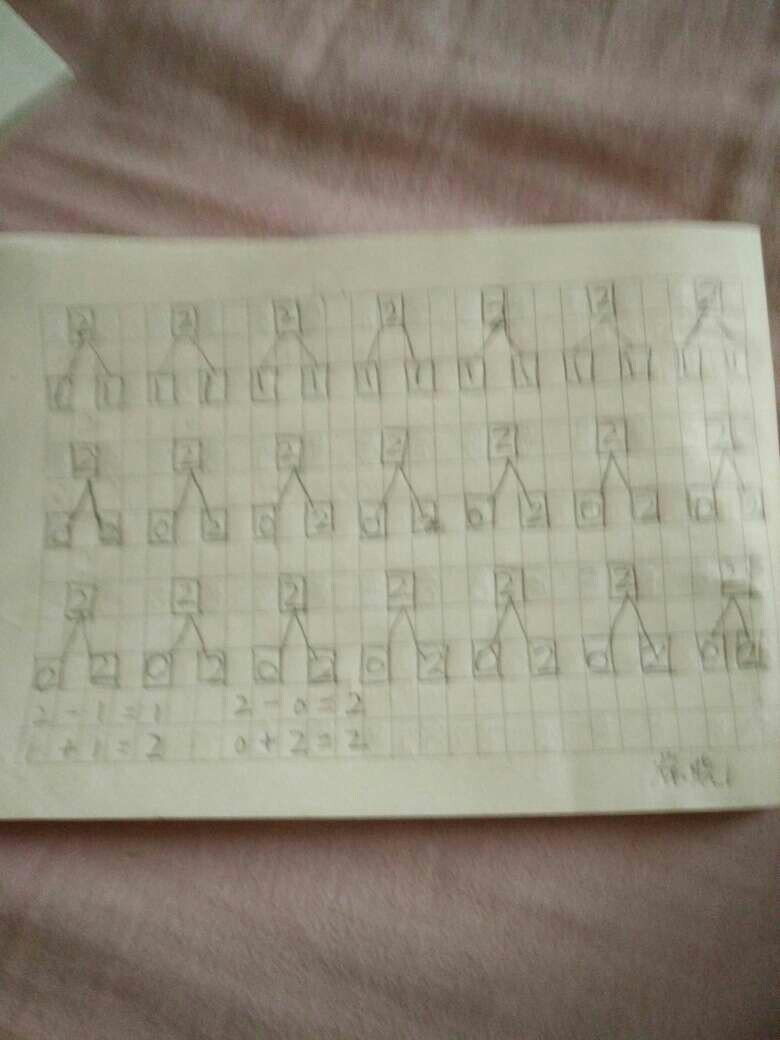 2 2 2 2 2 2 2
1 1 1 1 1 1 1 1 1 1 1 1 1 1
2 2 2 2 2 2 2
0 2 0 2 0 2 0 2 0 2 0 2 0 2
2 2 2 2 2 2
0 2 0 2 0 2 0 2 0 2 0 2 0 2
2-1=1 2-0=2
1+1=2 0+2=2